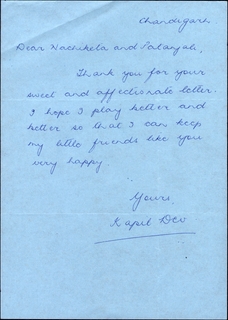 Chandigarh
Dear Nachiketa and Satanjali,
Thank you for your
sweet and affectionate letter.
I hope I play better and
better so that I can keep
my little friends like you
very happy.
Yours,
Kapil Dev